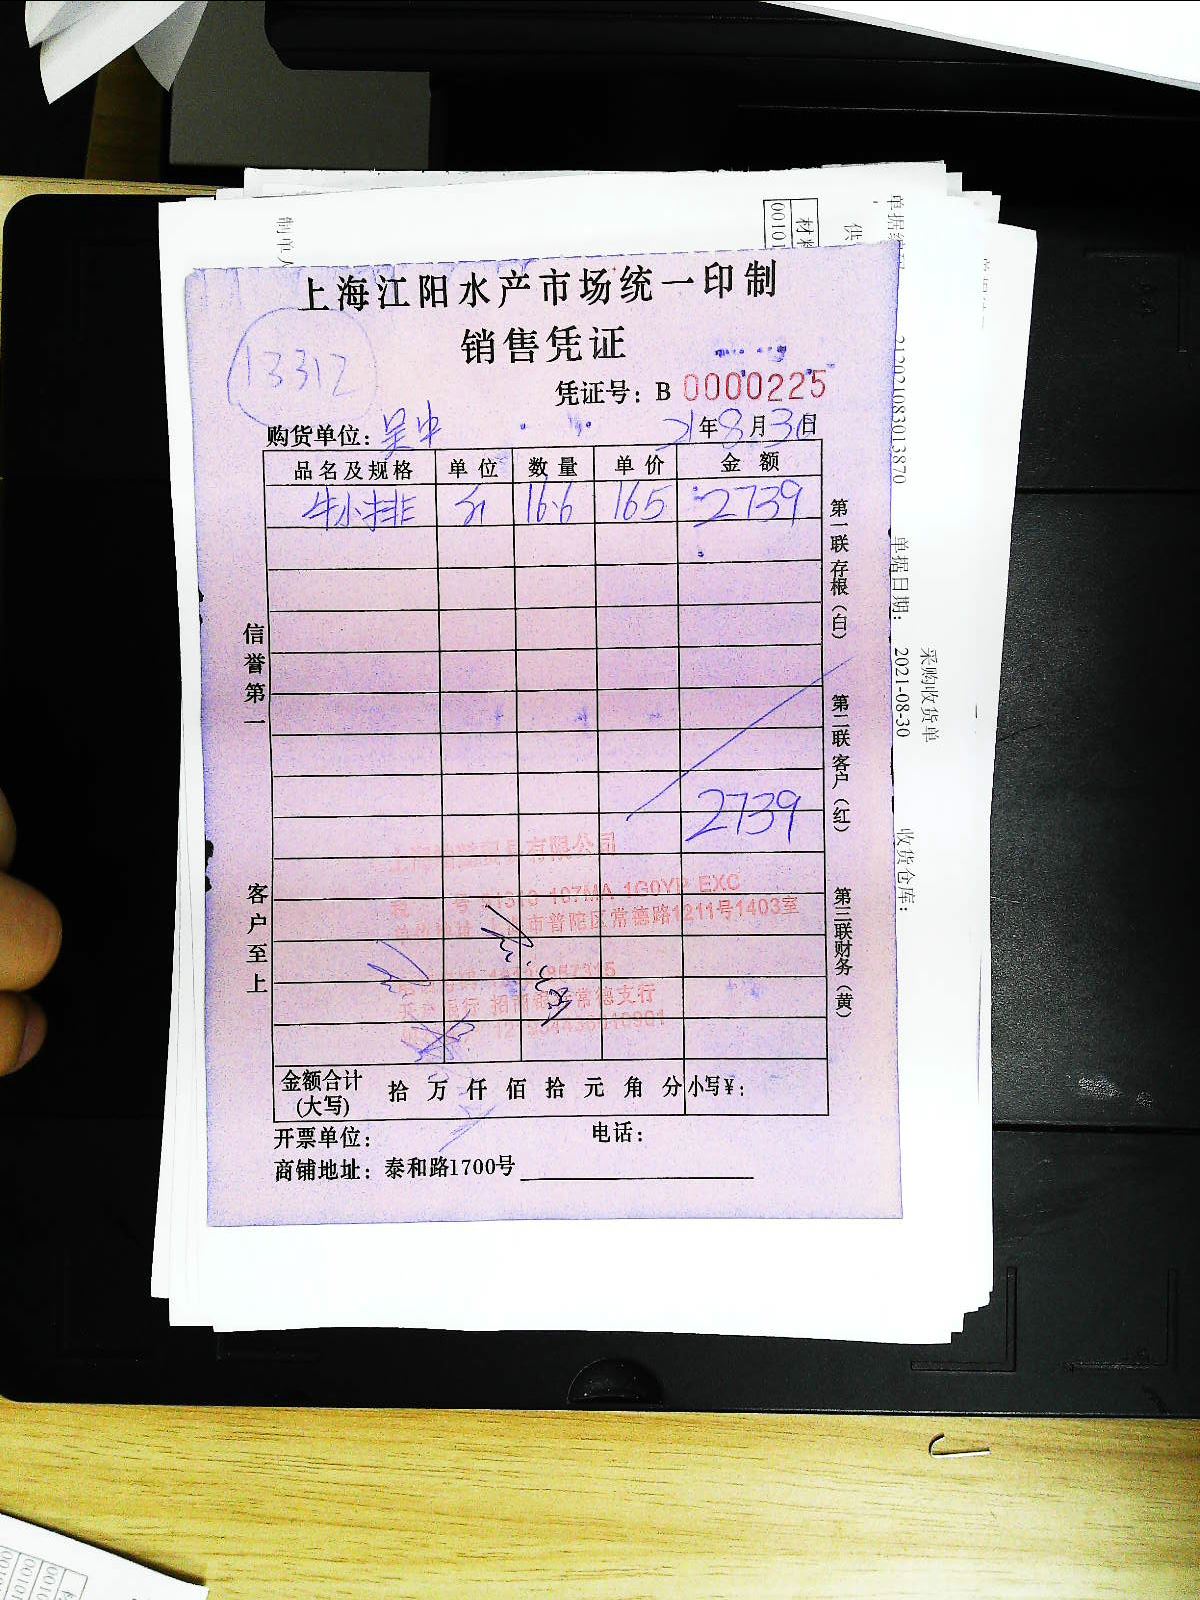 上海江阳水产市场统一印制
销售凭证
13312
凭证号：B 0000225
购货单位：吴中 21年8月30日
品名及规格 单位 数量 单价 金额
牛小排 16.6 165 2739
2739
信誉第一
客户至上
第一联存根（白）
第二联客户（红）
第三联财务（黄）
有限公司
市普陀区常德路1211号1403室
常德支行
金额合计(大写) 拾 万 仟 佰 拾 元 角 分 小写￥：
开票单位： 电话：
商铺地址：泰和路1700号
采购收货单
单据日期： 2021-08-30
收货仓库：